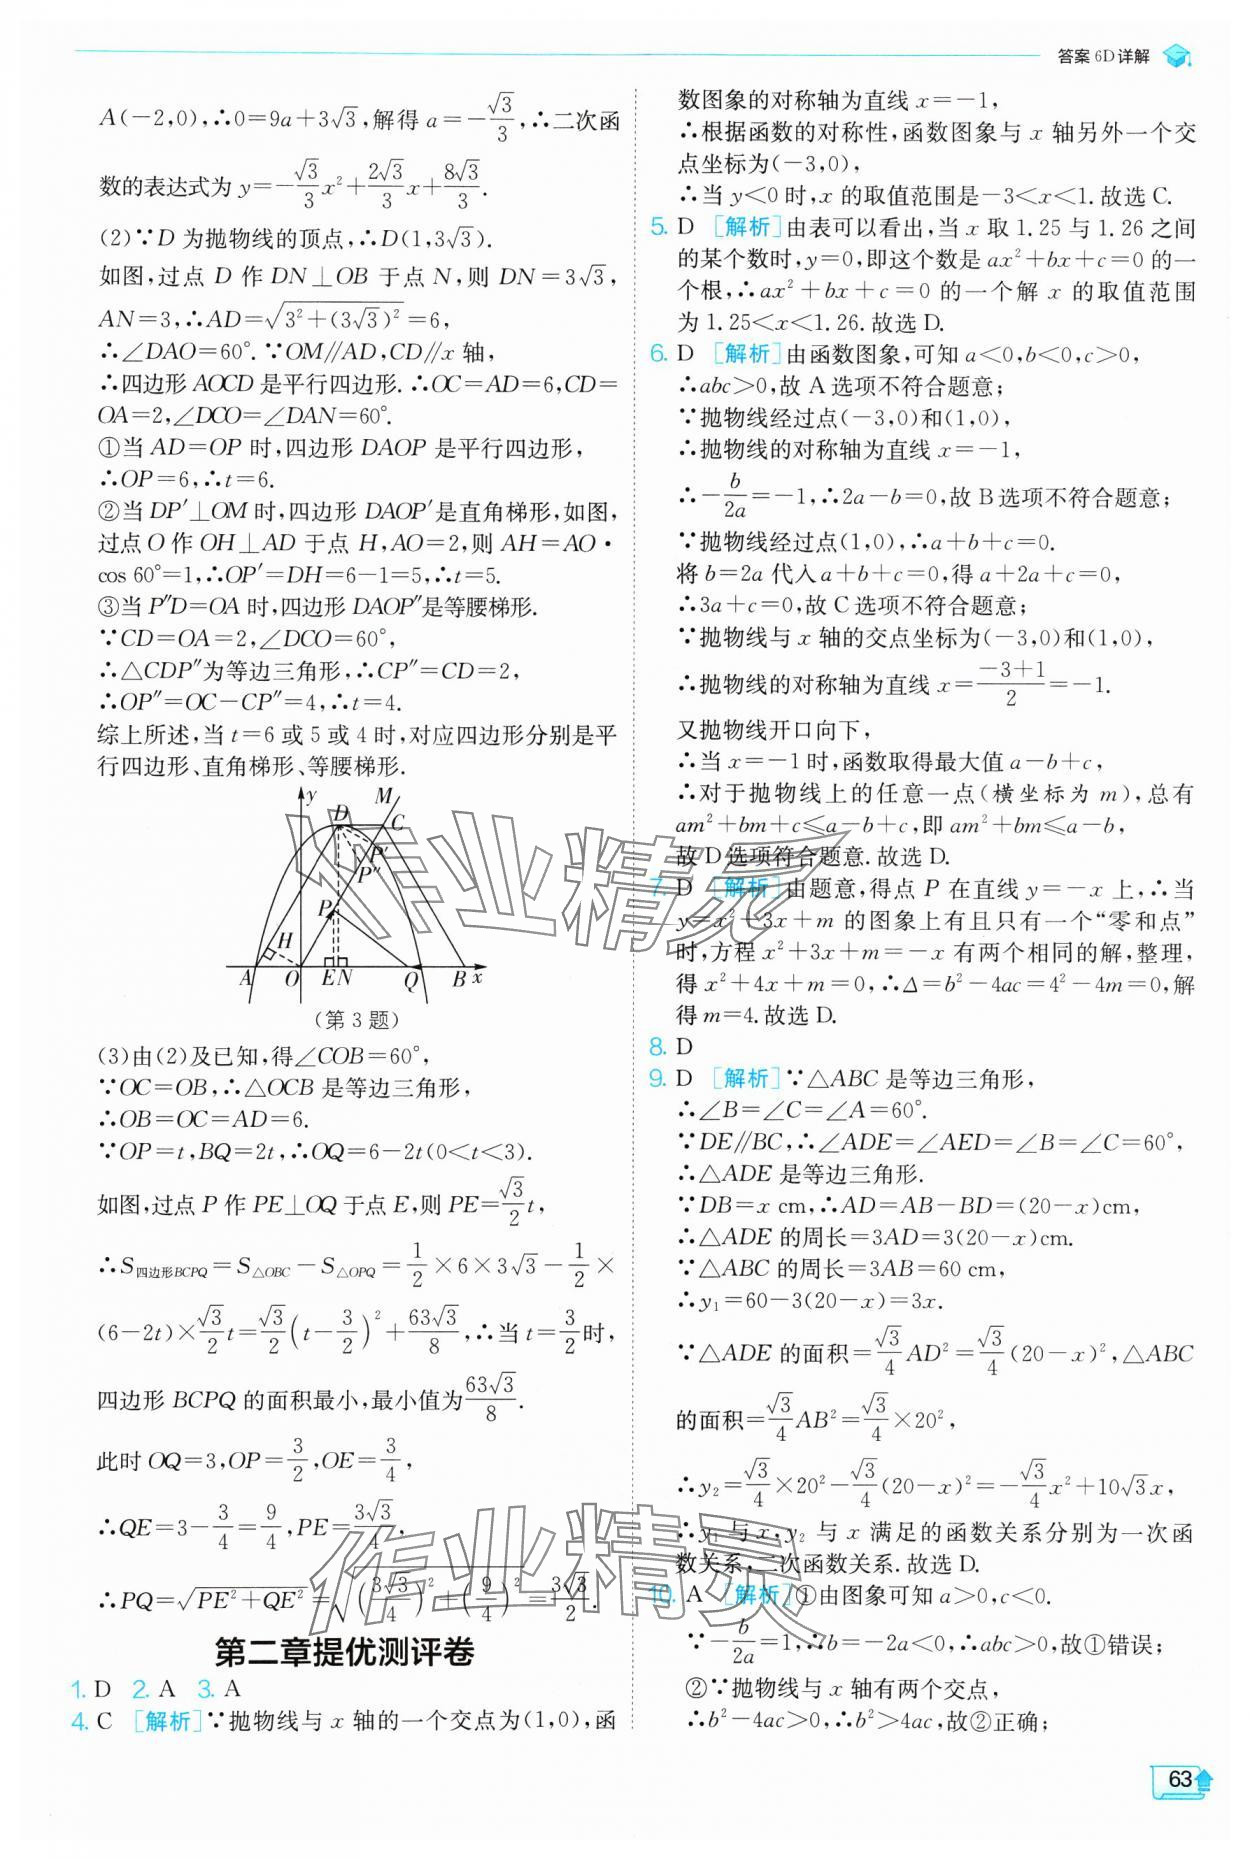 答案 6D详解
A(-2,0),∴0=9a+3√3,解得 a=-√3/3,∴二次函
数的表达式为 y=-√3/3x²+2√3/3x+8√3/3.
(2)∵D 为抛物线的顶点,∴D(1,3√3).
如图,过点 D 作 DN⊥OB 于点 N,则 DN=3√3,
AN=3,∴AD=√(3²+(3√3)²)=6,
∴∠DAO=60°.∵OM∥AD,CD∥x 轴,
∴四边形 AOCD 是平行四边形.∴OC=AD=6,CD=
OA=2,∠DCO=∠DAN=60°.
①当 AD=OP 时,四边形 DAOP 是平行四边形,
∴OP=6,∴t=6.
②当 DP′⊥OM 时,四边形 DAOP′是直角梯形,如图,
过点 O 作 OH⊥AD 于点 H,AO=2,则 AH=AO·
cos 60°=1,∴OP′=DH=6-1=5,∴t=5.
③当 P″D=OA 时,四边形 DAOP″是等腰梯形.
∵CD=OA=2,∠DCO=60°,
∴△CDP″为等边三角形,∴CP″=CD=2,
∴OP″=OC-CP″=4,∴t=4.
综上所述,当 t=6 或 5 或 4 时,对应四边形分别是平
行四边形、直角梯形、等腰梯形.
y M
D C
P′
P″
P
H
A O E N Q B x
(第 3 题)
(3)由(2)及已知,得∠COB=60°,
∵OC=OB,∴△OCB 是等边三角形,
∴OB=OC=AD=6.
∵OP=t,BQ=2t,∴OQ=6-2t(0<t<3).
如图,过点 P 作 PE⊥OQ 于点 E,则 PE=√3/2t,
∴S四边形BCPQ=S△OBC-S△OPQ=1/2×6×3√3-1/2×
(6-2t)×√3/2t=√3/2(t-3/2)²+63√3/8,∴当 t=3/2时,
四边形 BCPQ 的面积最小,最小值为63√3/8.
此时 OQ=3,OP=3/2,OE=3/4,
∴QE=3-3/4=9/4,PE=3√3/4,
∴PQ=√(PE²+QE²)=√((3√3/4)²+(9/4)²)=3√3/2.
第二章提优测评卷
1. D 2. A 3. A
4. C [解析]∵抛物线与 x 轴的一个交点为(1,0),函
数图象的对称轴为直线 x=-1,
∴根据函数的对称性,函数图象与 x 轴另外一个交
点坐标为(-3,0),
∴当 y<0 时,x 的取值范围是-3<x<1.故选 C.
5. D [解析]由表可以看出,当 x 取 1.25 与 1.26 之间
的某个数时,y=0,即这个数是 ax²+bx+c=0 的一
个根,∴ax²+bx+c=0 的一个解 x 的取值范围
为 1.25<x<1.26.故选 D.
6. D [解析]由函数图象,可知 a<0,b<0,c>0,
∴abc>0,故 A 选项不符合题意;
∵抛物线经过点(-3,0)和(1,0),
∴抛物线的对称轴为直线 x=-1,
∴-b/2a=-1,∴2a-b=0,故 B 选项不符合题意;
∵抛物线经过点(1,0),∴a+b+c=0.
将 b=2a 代入 a+b+c=0,得 a+2a+c=0,
∴3a+c=0,故 C 选项不符合题意;
∵抛物线与 x 轴的交点坐标为(-3,0)和(1,0),
∴抛物线的对称轴为直线 x=(-3+1)/2=-1.
又抛物线开口向下,
∴当 x=-1 时,函数取得最大值 a-b+c,
∴对于抛物线上的任意一点(横坐标为 m),总有
am²+bm+c≤a-b+c,即 am²+bm≤a-b,
故 D 选项符合题意.故选 D.
7. D [解析]由题意,得点 P 在直线 y=-x 上,∴当
y=x²+3x+m 的图象上有且只有一个“零和点”
时,方程 x²+3x+m=-x 有两个相同的解,整理,
得 x²+4x+m=0,∴Δ=b²-4ac=4²-4m=0,解
得 m=4.故选 D.
8. D
9. D [解析]∵△ABC 是等边三角形,
∴∠B=∠C=∠A=60°.
∵DE∥BC,∴∠ADE=∠AED=∠B=∠C=60°,
∴△ADE 是等边三角形.
∵DB=x cm,∴AD=AB-BD=(20-x)cm,
∴△ADE 的周长=3AD=3(20-x)cm.
∵△ABC 的周长=3AB=60 cm,
∴y₁=60-3(20-x)=3x.
∵△ADE 的面积=√3/4AD²=√3/4(20-x)²,△ABC
的面积=√3/4AB²=√3/4×20²,
∴y₂=√3/4×20²-√3/4(20-x)²=-√3/4x²+10√3x,
∴y₁ 与 x,y₂ 与 x 满足的函数关系分别为一次函
数关系,二次函数关系.故选 D.
10. A [解析]①由图象可知 a>0,c<0.
∵-b/2a=1,∴b=-2a<0,∴abc>0,故①错误;
②∵抛物线与 x 轴有两个交点,
∴b²-4ac>0,∴b²>4ac,故②正确;
63
作业精灵
作业精灵